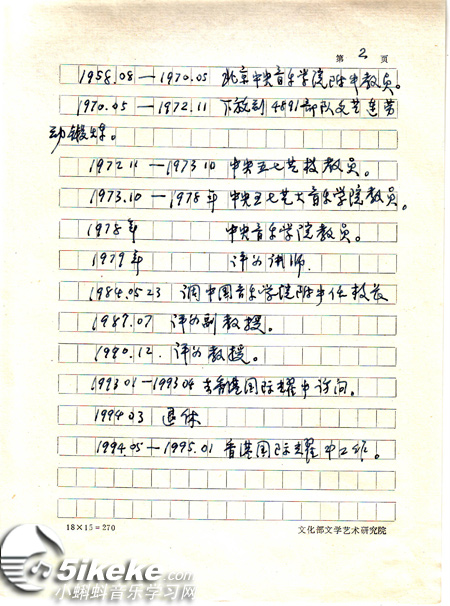 第 2 页
1958.08—1970.05 北京中央音乐学院附中教员。
1970.05—1972.11 下放到4891部队文艺连劳
动锻炼。
1972 11—1973 10 中央五七艺校教员。
1973.10—1978年 中央五七艺大音乐学院教员。
1978年 中央音乐学院教员。
1979年 评为讲师.
1984.05 23 调中国音乐学院附中任校长
1987.07 评为副教授。
1990.12. 评为教授。
1993 01—1993 04 去香港国际耀中访问。
1994 03 退休
1994.05—1995.01 香港国际耀中工作。
18×15=270 文化部文学艺术研究院
5ikeke.com
小蝌蚪音乐学习网